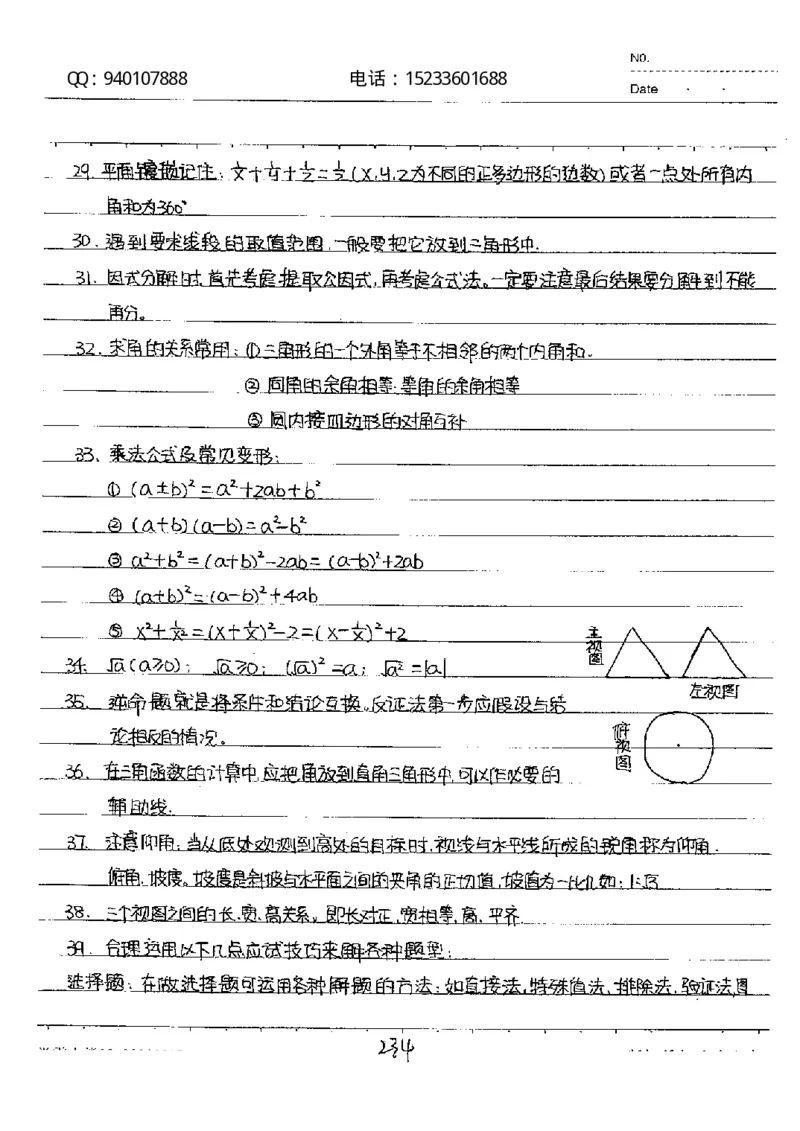 NO.
QQ：940107888 电话：15233601688
Date
29. 平面镶嵌记住：1/x+1/y+1/z=1/2(x,y,z为不同的正多边形的边数)或者一点处所有内
角和为360°
30. 遇到要求线段的取值范围，一般要把它放到三角形中.
31. 因式分解时，首先考虑提取公因式，再考虑公式法。一定要注意最后结果要分解到不能
再分。
32. 求角的关系常用：①三角形的一个外角等于不相邻的两个内角和。
② 同角的余角相等.等角的余角相等
③ 圆内接四边形的对角互补
33、乘法公式及常见变形：
① (a±b)²=a²+2ab+b²
② (a+b)(a-b)=a²-b²
③ a²+b²=(a+b)²-2ab=(a-b)²+2ab
④ (a+b)²=(a-b)²+4ab
⑤ x²+1/x²=(x+1/x)²-2=(x-1/x)²+2
主视图
34. √a(a≥0)； √a≥0； (√a)²=a； √a²=|a|
左视图
35. 逆命题就是将条件和结论互换。反证法第一步应假设与结
论相反的情况。
俯视图
36. 在三角函数的计算中，应把角放到直角三角形中，可以作必要的
辅助线.
37. 注意仰角：当从低处观测到高处的目标时，视线与水平线所成的锐角称为仰角.
俯角、坡度。坡度是斜坡与水平面之间的夹角的正切值，坡值为一比几如：1:√3
38. 三个视图之间的长、宽、高关系。即长对正，宽相等，高.平齐
39. 合理运用以下几点应试技巧来解各种题型：
选择题：在做选择题可运用各种解题的方法：如直接法，特殊值法，排除法，验证法，图
234